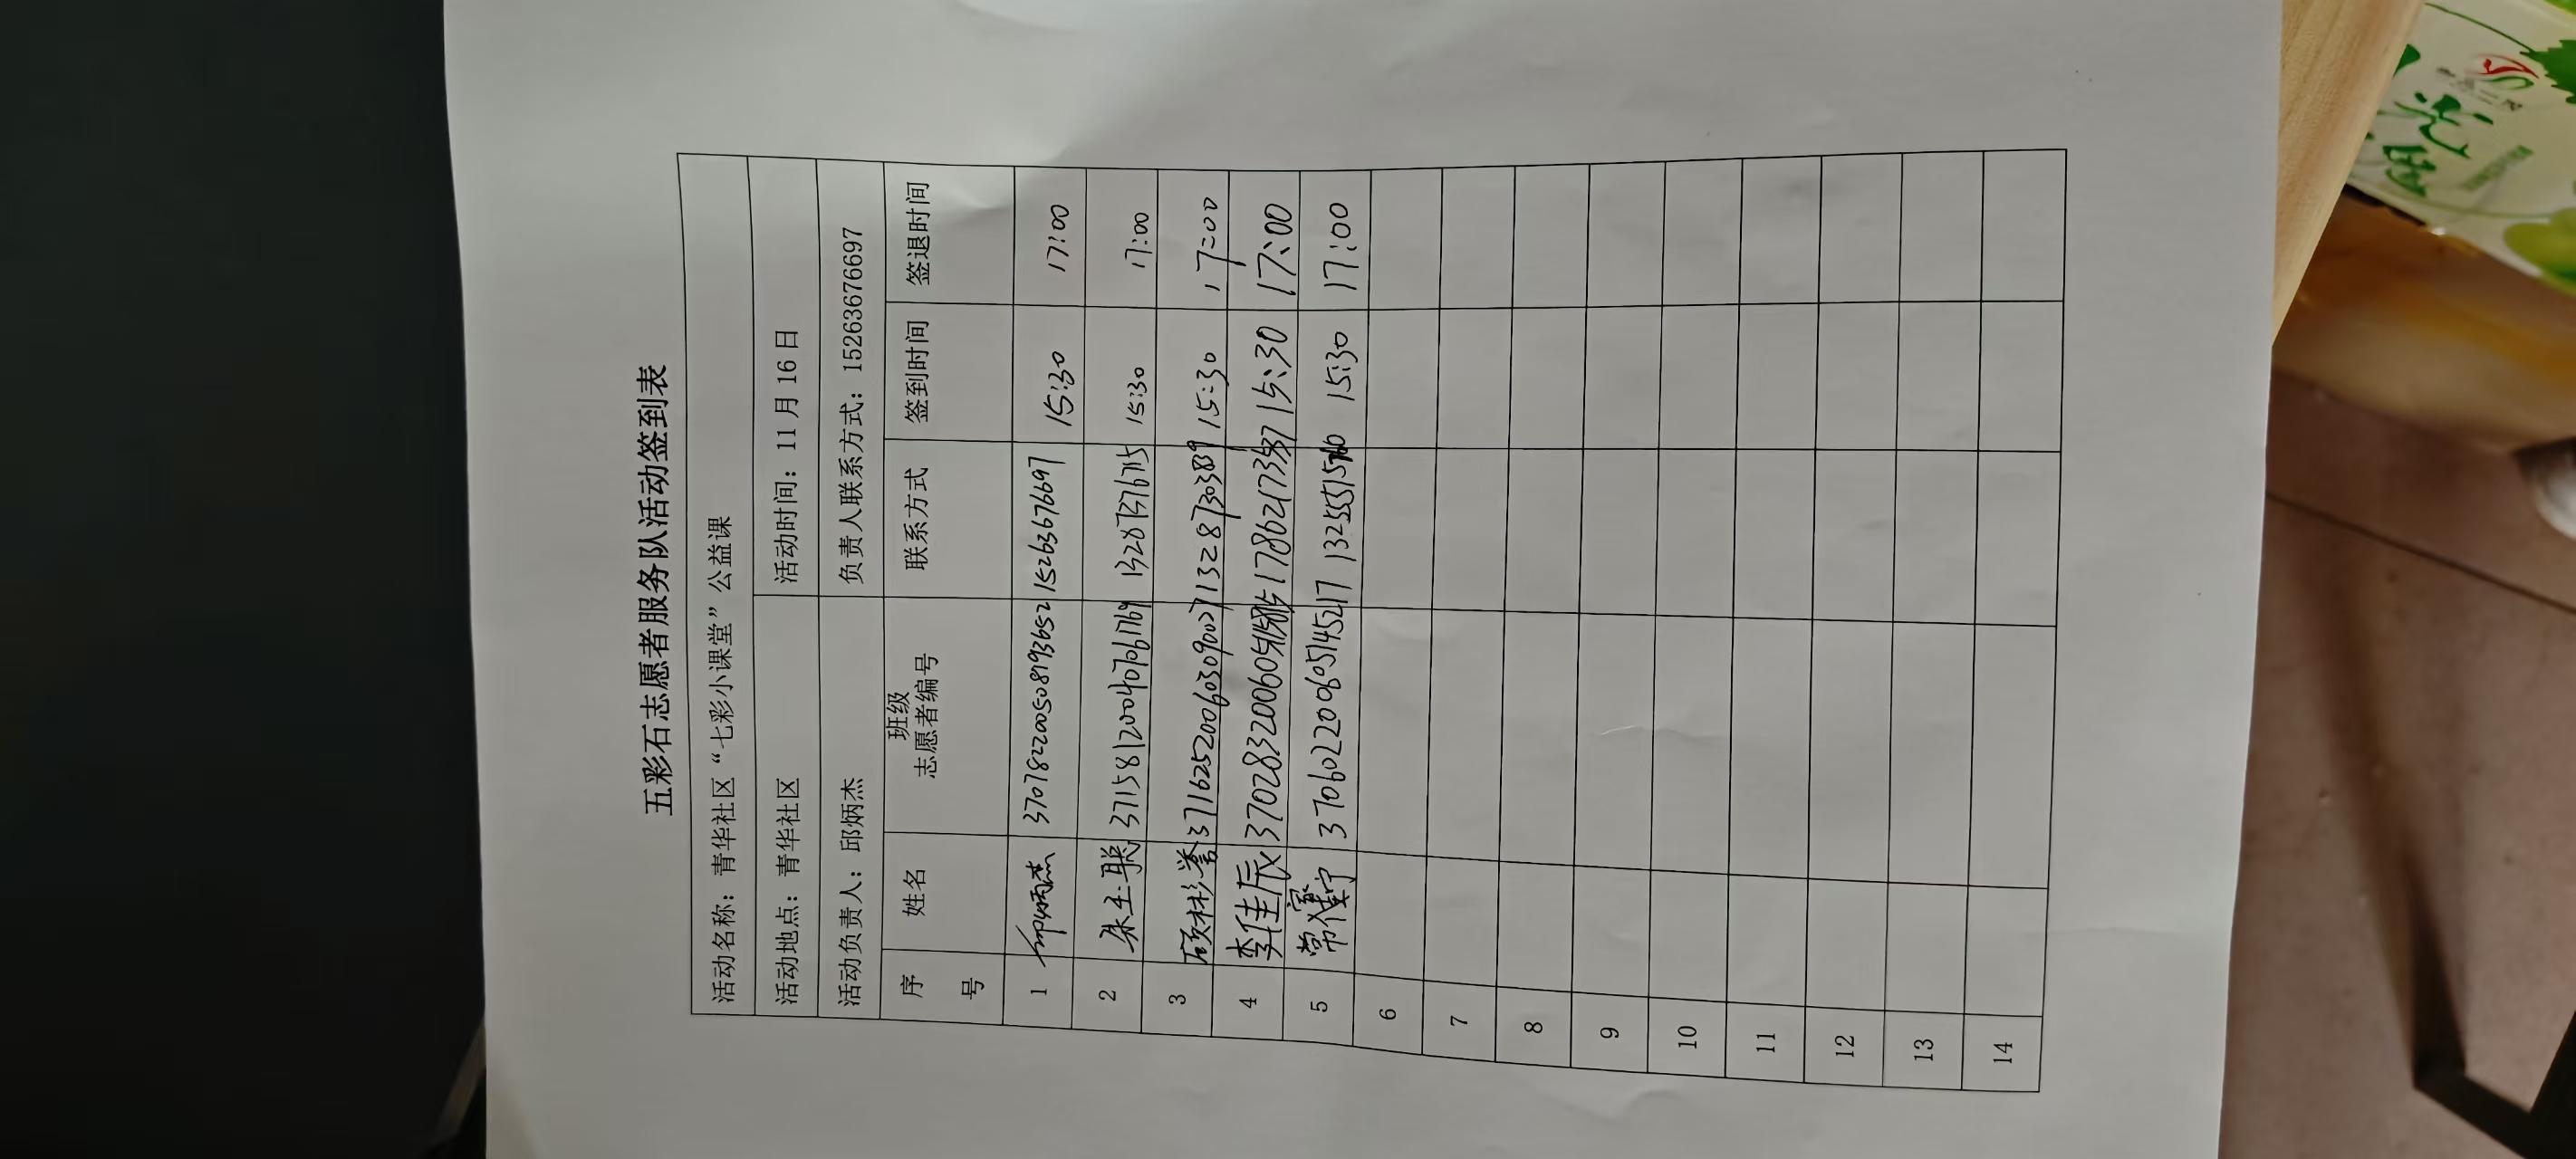 五彩石志愿者服务队活动签到表
活动名称：青华社区“七彩小课堂”公益课
活动地点：青华社区 活动时间：11 月 16 日
活动负责人：邱炳杰 负责人联系方式：15263676697
序号 姓名 班级志愿者编号 联系方式 签到时间 签退时间
1 邱炳杰 370782200508193652 15263676697 15:30 17:00
2 371581200407061769 13287376715 15:30 17:00
3 371625200603090027 13287303889 15:30 17:00
4 李佳辰 15:30 17:00
5 常赛宁 370602200605145217 15:30 17:00
6
7
8
9
10
11
12
13
14